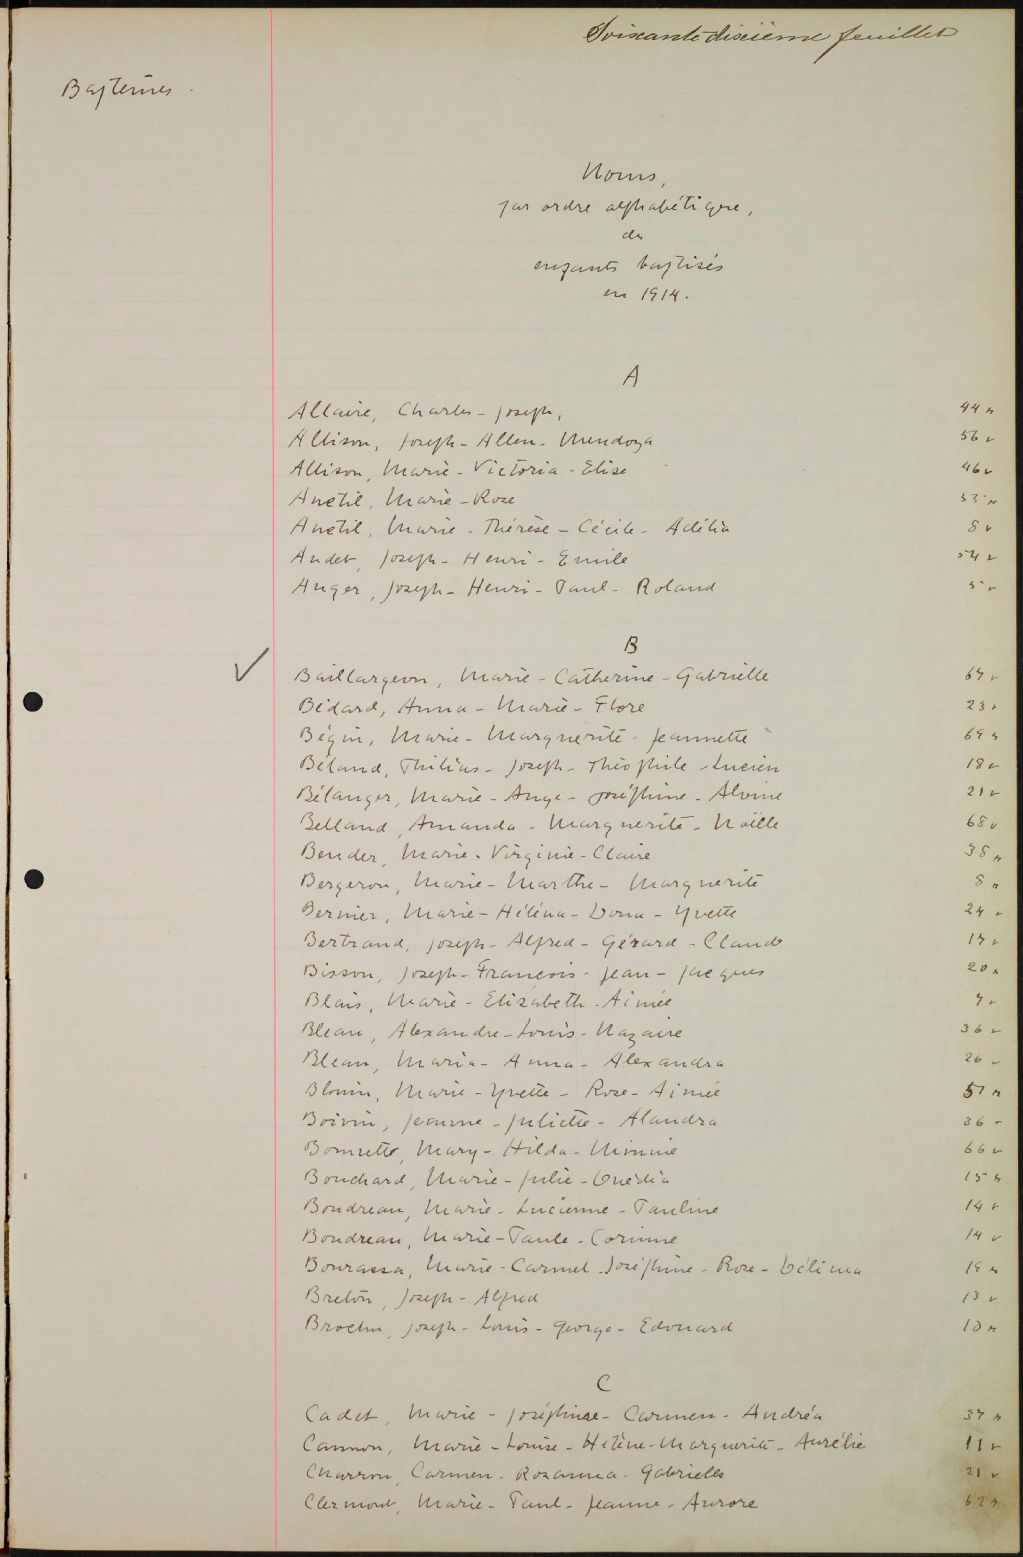 Soixante dixième feuillet
Baptêmes.
Noms,
par ordre alphabétique,
des
enfants baptisés
en 1914.
A
Allaire, Charles-Joseph, 44 r
Allison, Joseph-Allen-Mendoza 56 v
Allison, Marie-Victoria-Elise 46 v
Anctil, Marie-Rose 55 r
Anctil, Marie-Thérèse-Cécile-Adélia 8 v
Audet, Joseph-Henri-Emile 54 v
Auger, Joseph-Henri-Paul-Roland 5 v
B
Baillargeon, Marie-Catherine-Gabrielle 67 v
Bédard, Anna-Marie-Flore 23 v
Bégin, Marie-Marguerite-Jeannette 69 r
Béland, Philias-Joseph-Théophile-Lucien 18 v
Bélanger, Marie-Ange-Joséphine-Alvine 21 v
Belland, Amanda-Marguerite-Noëlle 68 v
Bender, Marie-Virginie-Claire 38 r
Bergeron, Marie-Marthe-Marguerite 8 r
Bernier, Marie-Héléna-Dona-Yvette 24 v
Bertrand, Joseph-Alfred-Gérard-Claude 17 v
Bisson, Joseph-François-Jean-Jacques 20 r
Blais, Marie-Elizabeth-Aimée 7 v
Bleau, Alexandre-Louis-Nazaire 36 v
Bleau, Maria-Anna-Alexandra 26 v
Blouin, Marie-Yvette-Rose-Aimée 57 r
Boivin, Jeanne-Juliette-Alandra 36 v
Bonnette, Mary-Hilda-Minnie 66 v
Bouchard, Marie-Julie-Onédia 15 r
Boudreau, Marie-Lucienne-Pauline 14 v
Boudreau, Marie-Paule-Corinne 14 v
Bourassa, Marie-Carmel-Joséphine-Rose-Délima 19 r
Breton, Joseph-Alfred 13 v
Brochu, Joseph-Louis-George-Edouard 10 r
C
Cadet, Marie-Joséphine-Carmen-Andréa 37 r
Cannon, Marie-Louise-Hélène-Marguerite-Aurélie 11 v
Charron, Carmen-Rosanna-Gabrielle 21 v
Clermont, Marie-Paul-Jeanne-Aurore 62 r